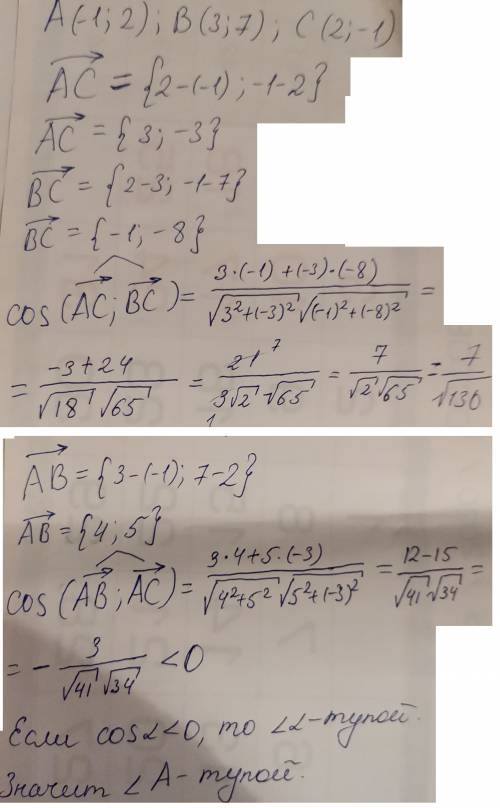 A(-1; 2); B(3; 7); C(2; -1)
AC = {2-(-1); -1-2}
AC = {3; -3}
BC = {2-3; -1-7}
BC = {-1; -8}
cos(AC; BC) = 3·(-1)+(-3)·(-8) / √3²+(-3)² √(-1)²+(-8)² =
= -3+24 / √18 √65 = 21 7 / 3√2 √65 1 = 7 / √2 √65 = 7 / √130
AB = {3-(-1); 7-2}
AB = {4; 5}
cos(AB; AC) = 3·4+5·(-3) / √4²+5² √5²+(-3)² = 12-15 / √41 √34 =
= - 3 / √41 √34 < 0
Если cosα<0, то ∠α-тупой.
Значит ∠A-тупой.